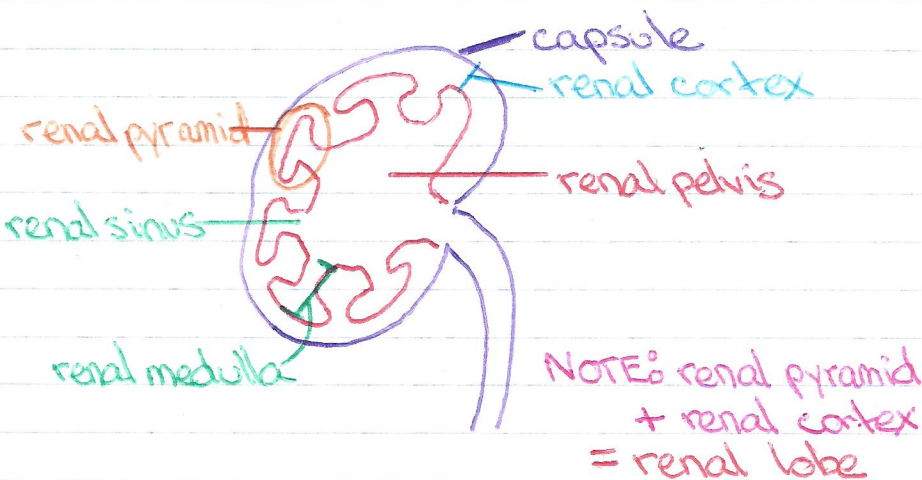 capsule
renal cortex
renal pyramid
renal pelvis
renal sinus
renal medulla
NOTE: renal pyramid
+ renal cortex
= renal lobe